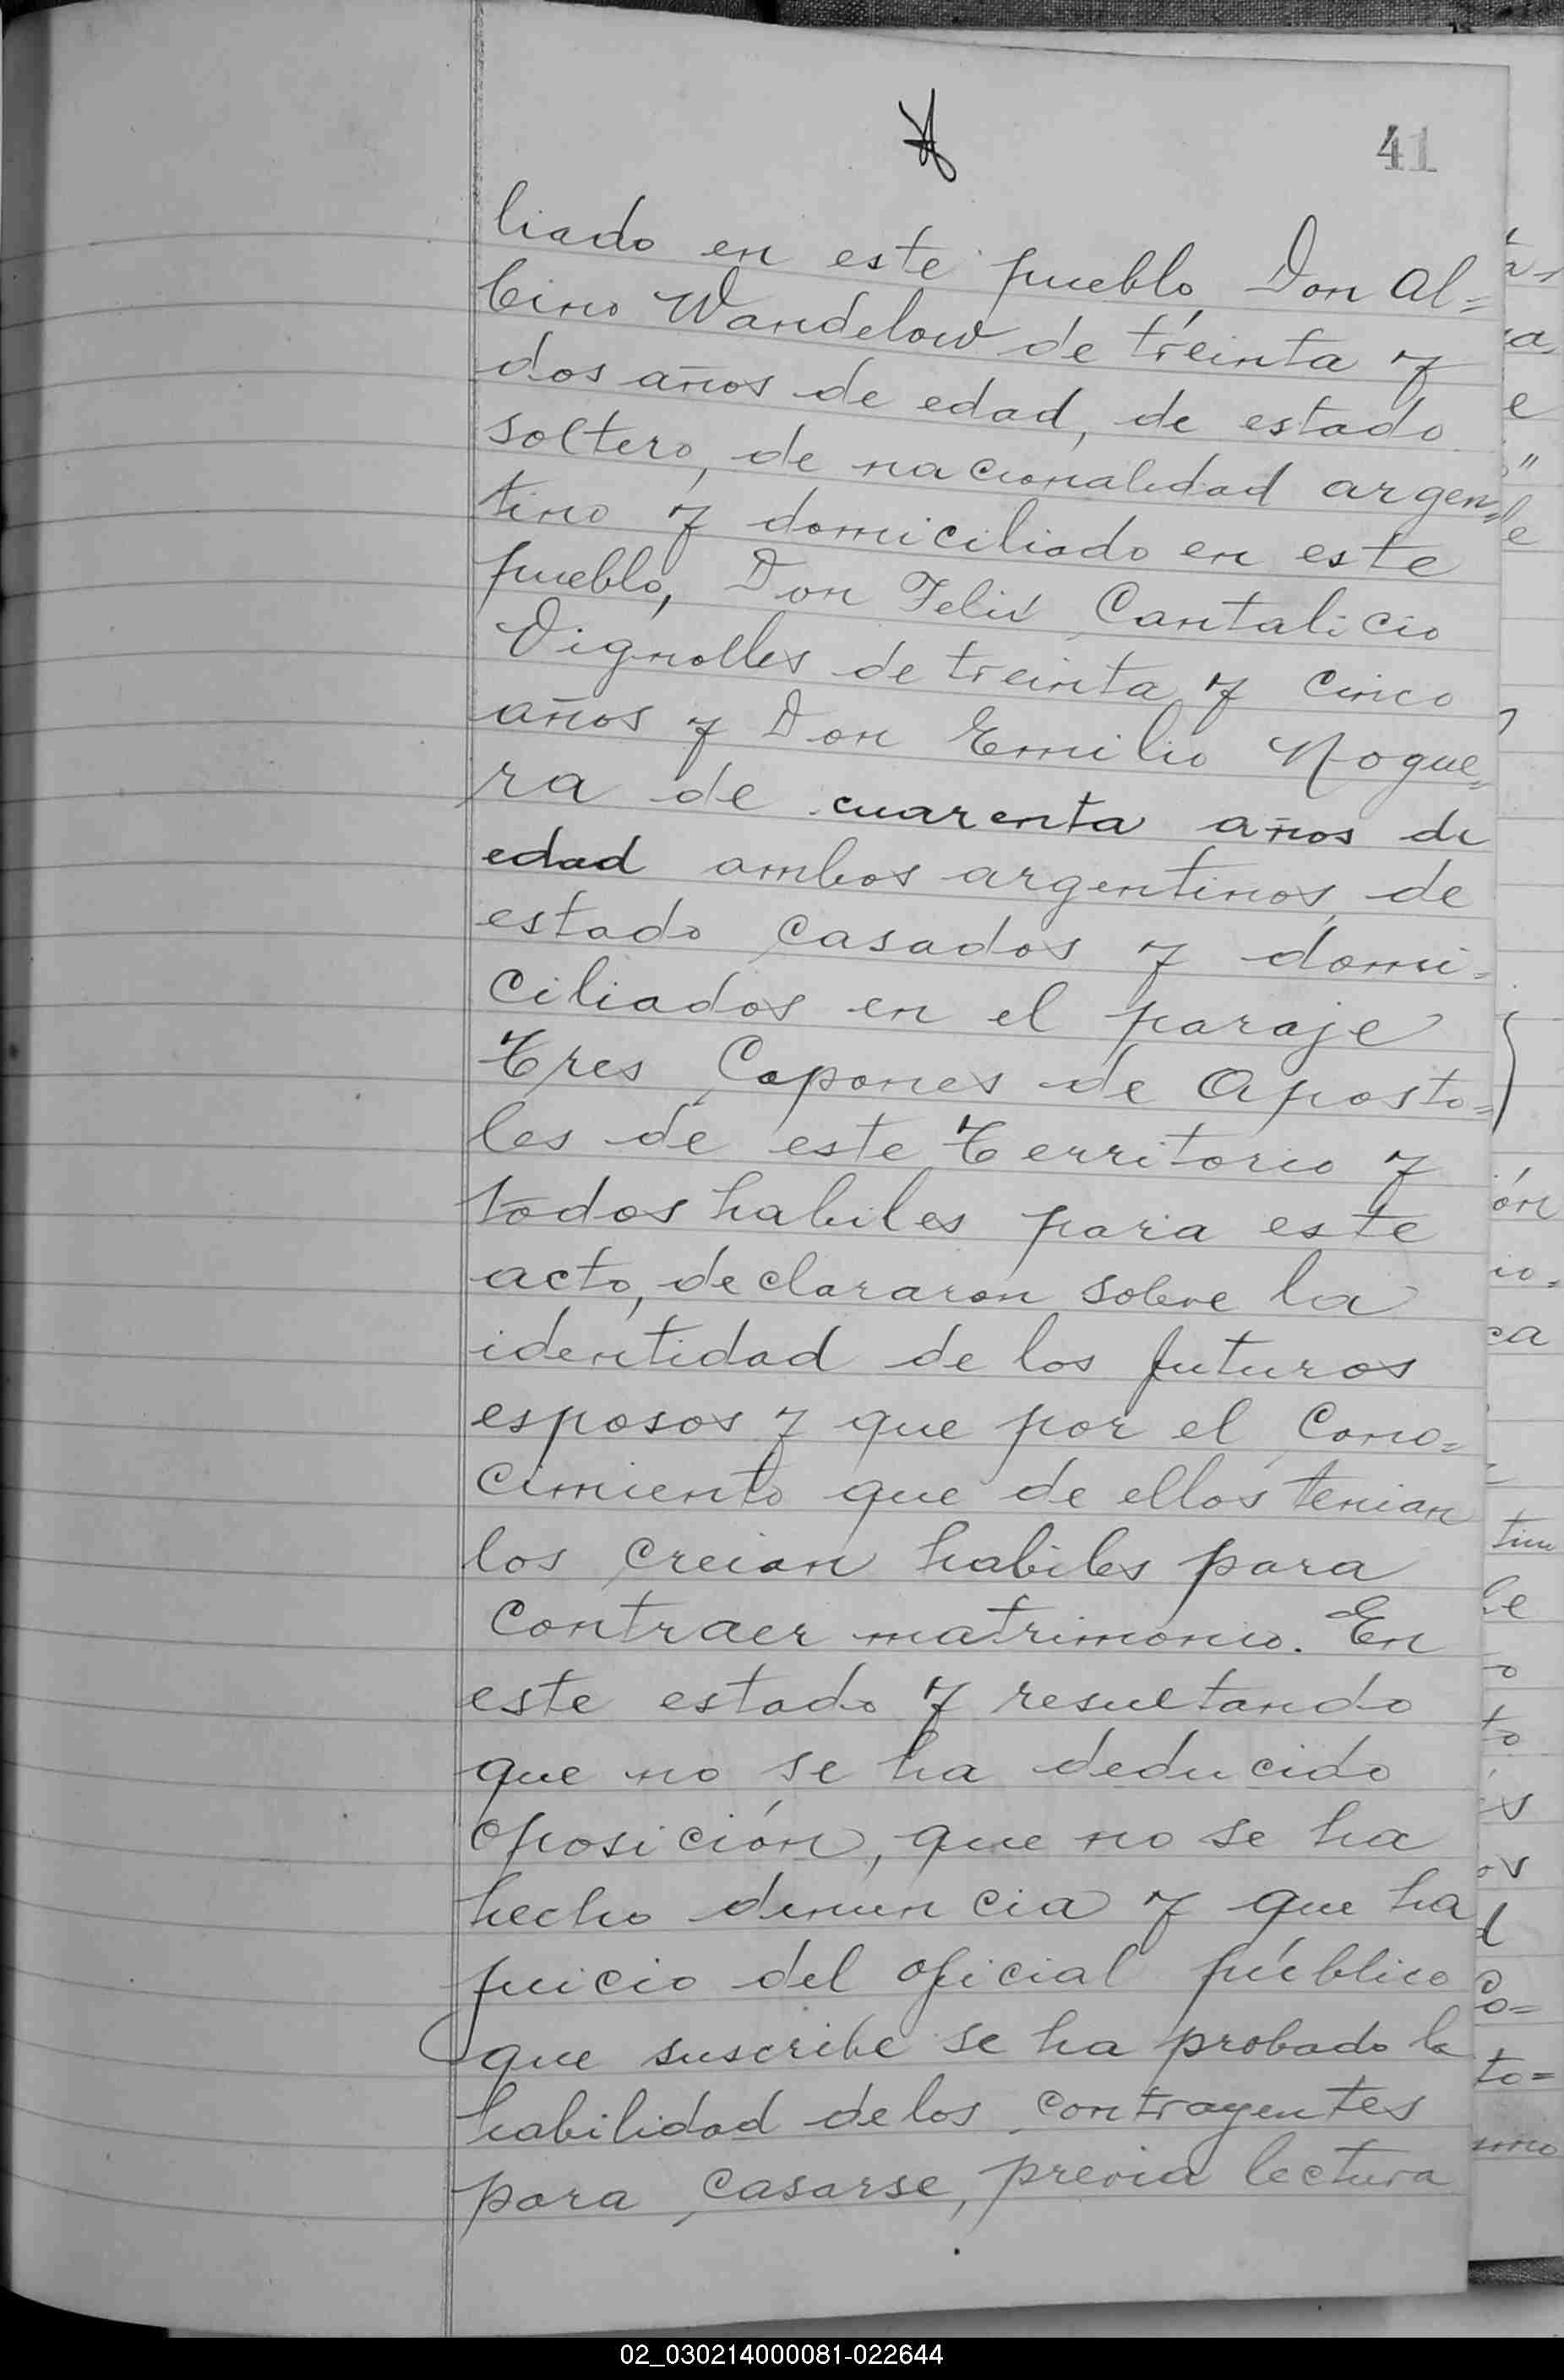 41
liado en este pueblo, Don Al=
bino Wandelow de treinta y
dos años de edad, de estado
soltero, de nacionalidad argen=
tino y domiciliado en este
pueblo, Don Felix Cantalicio
Vignolles de treinta y cinco
años y Don Emilio Nogue=
ra de cuarenta años de
edad ambos argentinos, de
estado casados y domi=
ciliados en el paraje
Tres Capones de Aposto=
les de este Territorio y
todos habiles para este
acto, declararon sobre la
identidad de los futuros
esposos y que por el cono=
cimiento que de ellos tenian
los creian habiles para
contraer matrimonio. En
este estado y resultando
que no se ha deducido
oposición, que no se ha
hecho denuncia y que ha
juicio del oficial público
que suscribe se ha probado la
habilidad de los contrayentes
para casarse, previa lectura
02_030214000081-022644